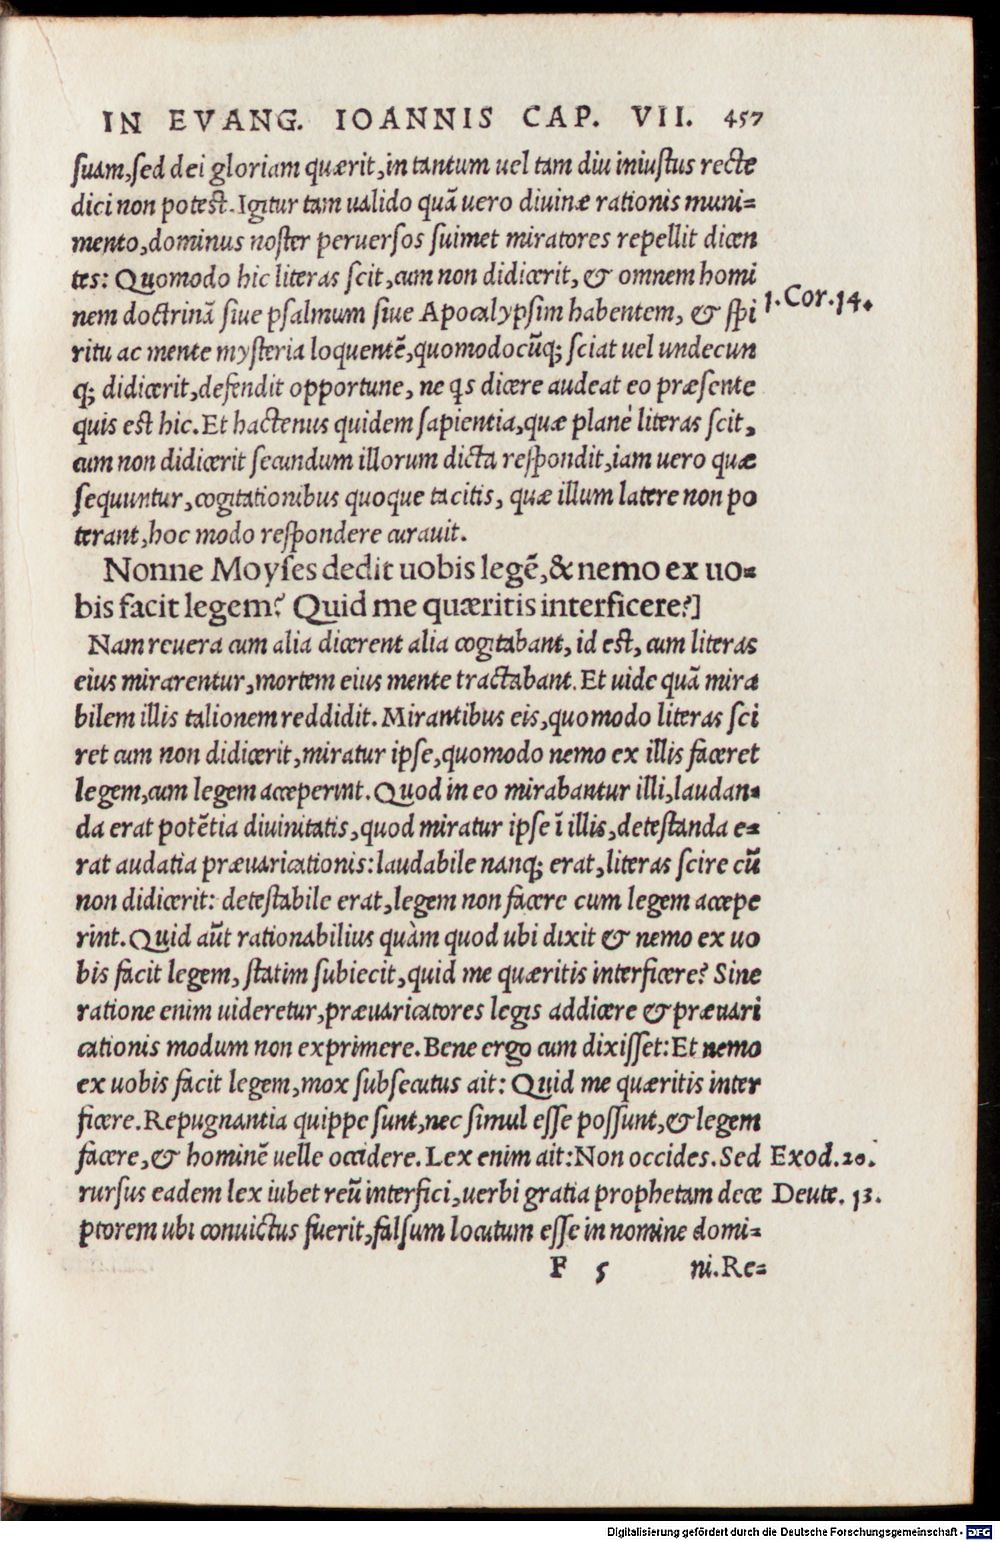 IN EVANG. IOANNIS CAP. VII. 457
suam, sed dei gloriam quærit, in tantum uel tam diu iniustus recte
dici non potest. Igitur tam ualido quā uero diuinæ rationis muni=
mento, dominus noster peruersos suimet miratores repellit dicen
tes: Quomodo hic literas scit, cum non didicerit, & omnem homi
nem doctrinā siue psalmum siue Apocalypsim habentem, & spi
1. Cor. 14.
ritu ac mente mysteria loquentē, quomodocūq; sciat uel undecun
q; didicerit, defendit opportune, ne qs dicere audeat eo præsente
quis est hic. Et hactenus quidem sapientia, quæ planè literas scit,
cum non didicerit secundum illorum dicta respondit, iam uero quæ
sequuntur, cogitationibus quoque tacitis, quæ illum latere non po
terant, hoc modo respondere curauit.
Nonne Moyses dedit uobis legē, & nemo ex uo=
bis facit legem? Quid me quæritis interficere?]
Nam reuera cum alia dicerent alia cogitabant, id est, cum literas
eius mirarentur, mortem eius mente tractabant. Et uide quā mira
bilem illis talionem reddidit. Mirantibus eis, quomodo literas sci
ret cum non didicerit, miratur ipse, quomodo nemo ex illis faceret
legem, cum legem acceperint. Quod in eo mirabantur illi, laudan=
da erat potētia diuinitatis, quod miratur ipse ī illis, detestanda e=
rat audatia præuaricationis: laudabile nanq; erat, literas scire cū
non didicerit: detestabile erat, legem non facere cum legem accepe
rint. Quid aūt rationabilius quàm quod ubi dixit & nemo ex uo
bis facit legem, statim subiecit, quid me quæritis interficere? Sine
ratione enim uideretur, præuaricatores legis addicere & præuari
cationis modum non exprimere. Bene ergo cum dixisset: Et nemo
ex uobis facit legem, mox subsecutus ait: Quid me quæritis inter
ficere. Repugnantia quippe sunt, nec simul esse possunt, & legem
facere, & hominē uelle occidere. Lex enim ait: Non occides. Sed Exod. 20.
rursus eadem lex iubet reū interfici, uerbi gratia prophetam dece Deute. 13.
ptorem ubi conuictus fuerit, falsum locutum esse in nomine domi=
F 5 ni. Re=
Digitalisierung gefördert durch die Deutsche Forschungsgemeinschaft - DFG